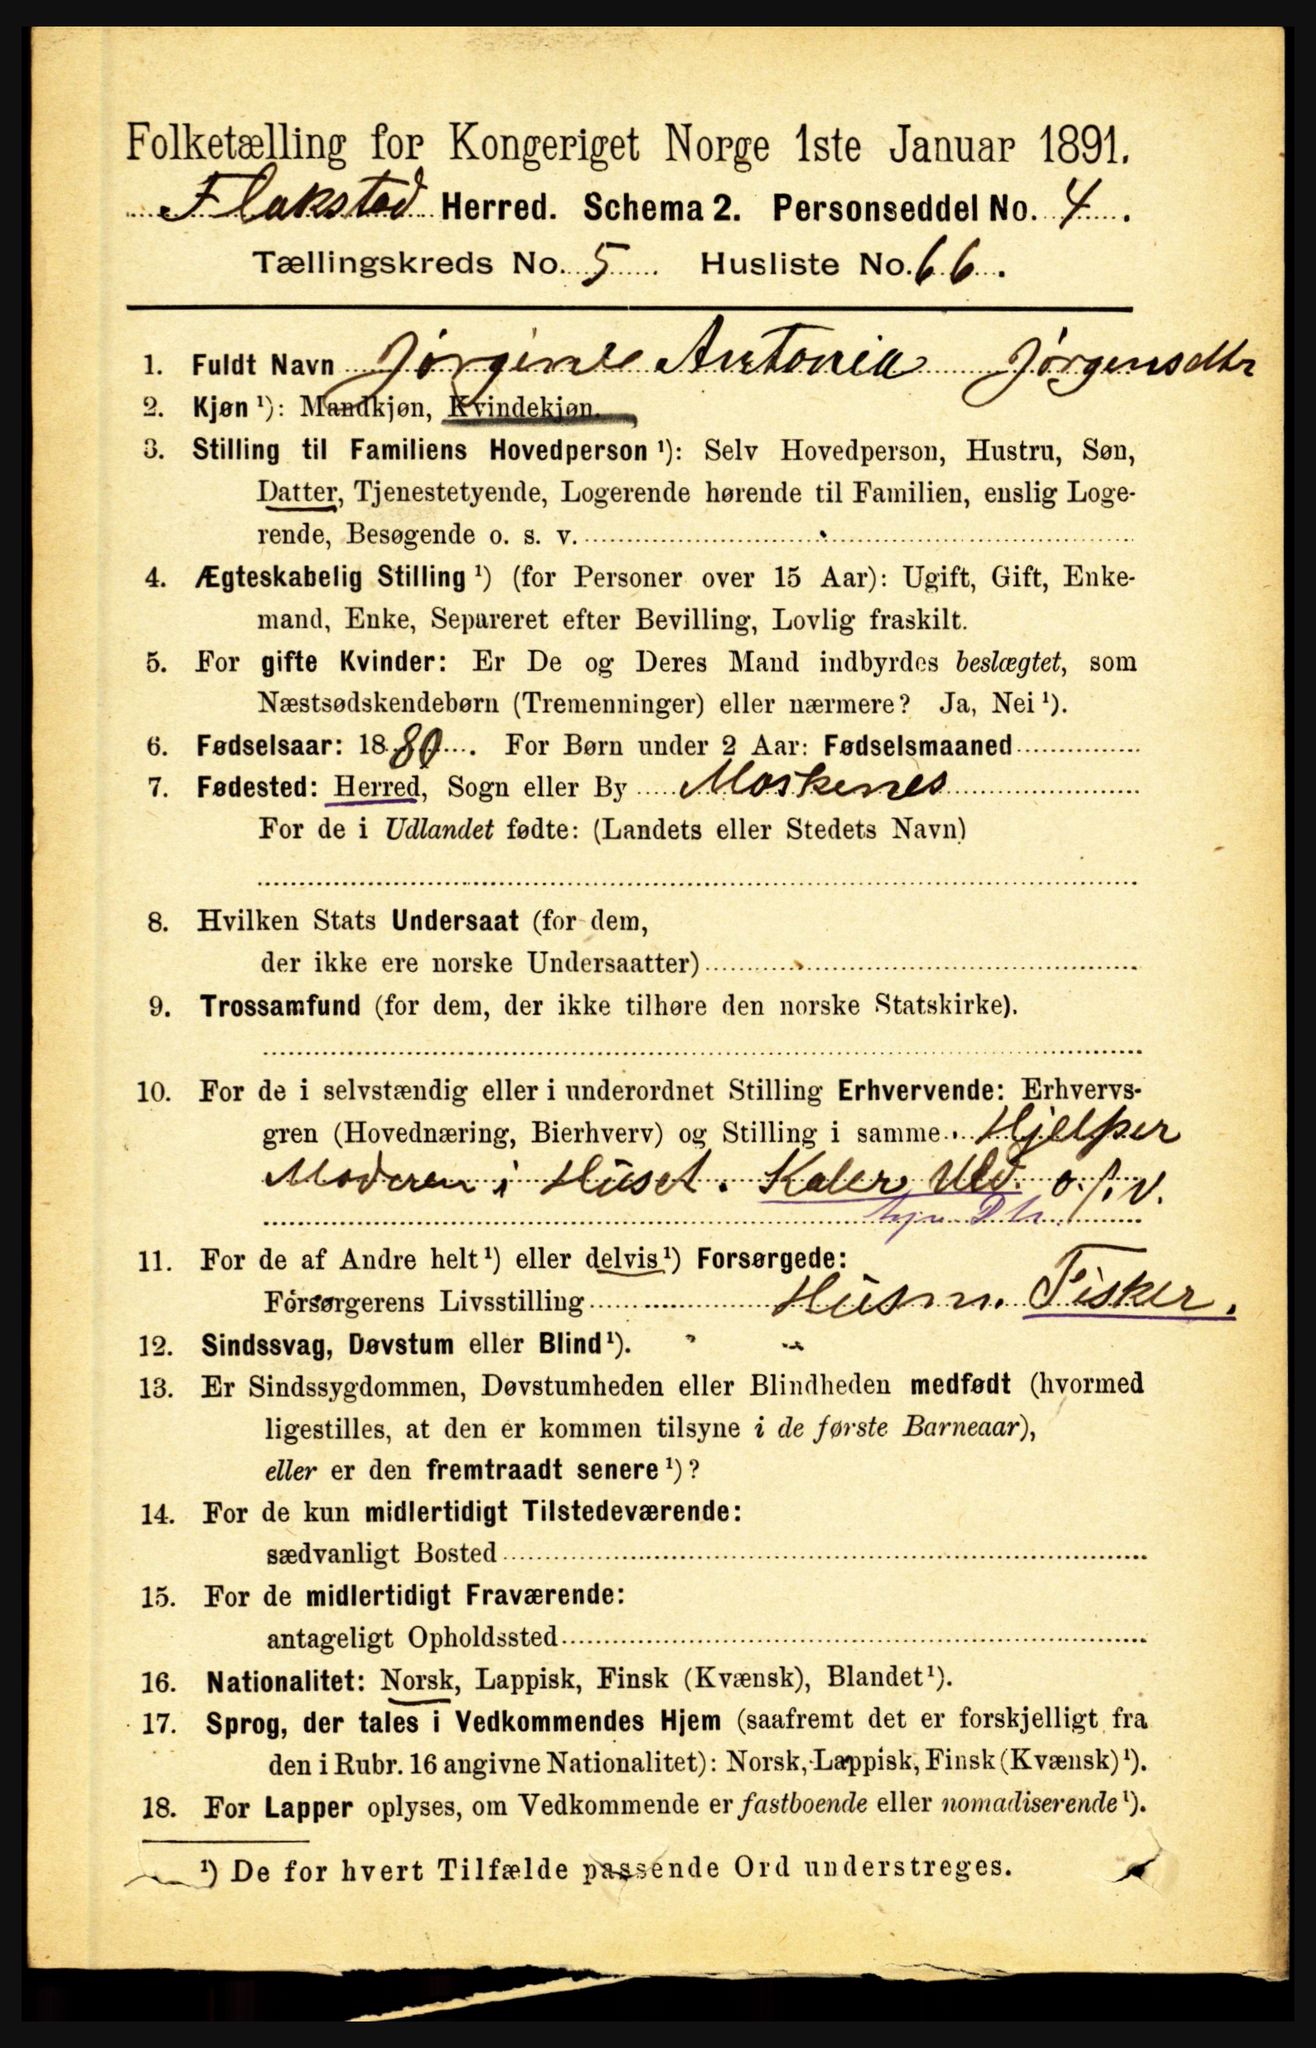 Folketælling for Kongeriget Norge 1ste Januar 1891.
Flakstad Herred. Schema 2. Personseddel No. 4.
Tællingskreds No. 5. Husliste No. 66.
1. Fuldt Navn Jørgine Antonia Jørgensdtr
2. Kjøn ¹): Mandkjøn, Kvindekjøn.
3. Stilling til Familiens Hovedperson ¹): Selv Hovedperson, Hustru, Søn,
Datter, Tjenestetyende, Logerende hørende til Familien, enslig Loge-
rende, Besøgende o. s. v.
4. Ægteskabelig Stilling ¹) (for Personer over 15 Aar): Ugift, Gift, Enke-
mand, Enke, Separeret efter Bevilling, Lovlig fraskilt.
5. For gifte Kvinder: Er De og Deres Mand indbyrdes beslægtet, som
Næstsødskendebørn (Tremenninger) eller nærmere? Ja, Nei ¹).
6. Fødselsaar: 1880. For Børn under 2 Aar: Fødselsmaaned
7. Fødested: Herred, Sogn eller By Moskenes
For de i Udlandet fødte: (Landets eller Stedets Navn)
8. Hvilken Stats Undersaat (for dem,
der ikke ere norske Undersaatter)
9. Trossamfund (for dem, der ikke tilhøre den norske Statskirke).
10. For de i selvstændig eller i underordnet Stilling Erhvervende: Erhvervs-
gren (Hovednæring, Bierhverv) og Stilling i samme. Hjelper
Moderen i Huset. Uld. o. s. v.
11. For de af Andre helt ¹) eller delvis ¹) Forsørgede:
Forsørgerens Livsstilling Husm. Fisker.
12. Sindssvag, Døvstum eller Blind ¹).
13. Er Sindssygdommen, Døvstumheden eller Blindheden medfødt (hvormed
ligestilles, at den er kommen tilsyne i de første Barneaar),
eller er den fremtraadt senere ¹)?
14. For de kun midlertidigt Tilstedeværende:
sædvanligt Bosted
15. For de midlertidigt Fraværende:
antageligt Opholdssted
16. Nationalitet: Norsk, Lappisk, Finsk (Kvænsk), Blandet ¹).
17. Sprog, der tales i Vedkommendes Hjem (saafremt det er forskjelligt fra
den i Rubr. 16 angivne Nationalitet): Norsk, Lappisk, Finsk (Kvænsk) ¹).
18. For Lapper oplyses, om Vedkommende er fastboende eller nomadiserende ¹).
¹) De for hvert Tilfælde passende Ord understreges.